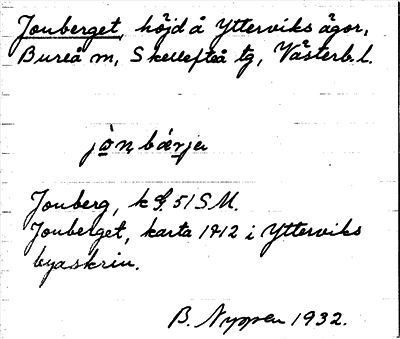 Jonberget, höjd å Ytterviks ägor,
Bureå m, Skellefteå tg, Västerb. l.
jò̠n̠bær̠ja
Jonberg, k 51 SM.
Jonberget, karta 1912 i Ytterviks
byaskrin.
B. Nyppen 1932.